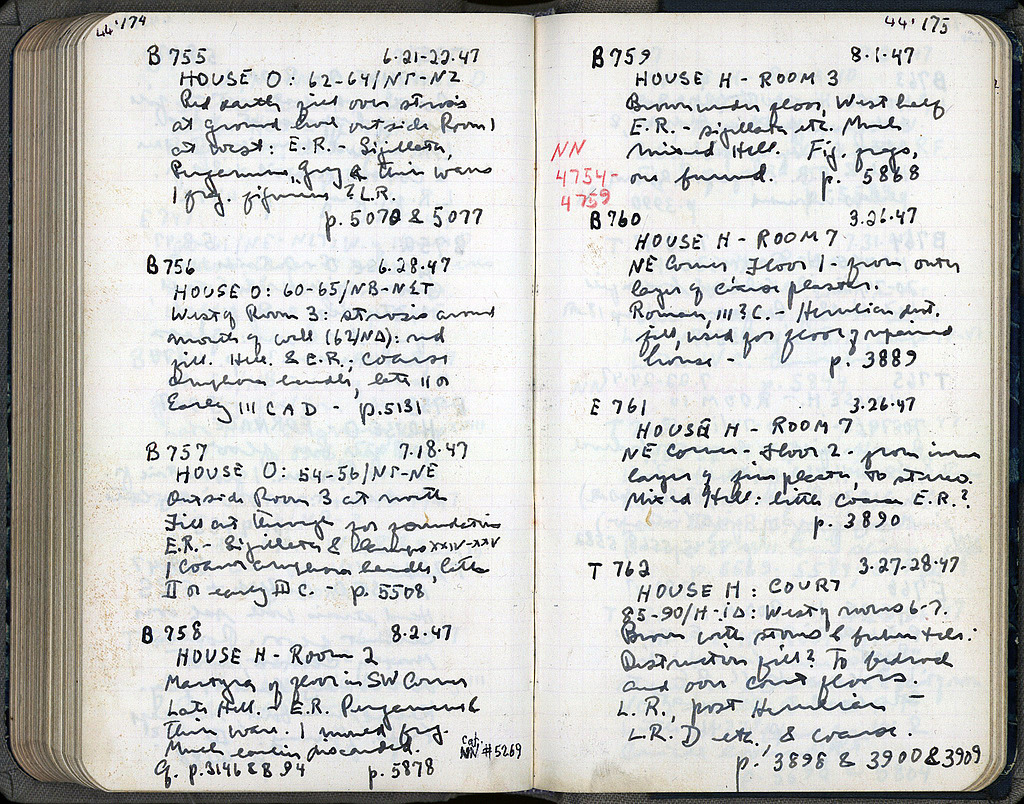 44'174
B 755 6-21-22.47
HOUSE O: 62-64/NΓ-NZ
Red earth fill over strosis
at ground level outside Room 1
at west: E.R. - Sigillata,
Pergamene, Gray & thin ware
1 frag. figurine ? L.R.
p. 5072 & 5077
B 756 6.28.47
HOUSE O: 60-65/NB-NΣT
West of Room 3: strosis around
mouth of well (62/NΔ): red
fill. Hell. & E.R., coarse
amphora handles, late II or
Early III C AD - p.5131
B 757 7.18.47
HOUSE O: 54-56/NΓ-NE
Outside Room 3 at north
Fill cut through for foundations
E.R. - Sigillata & Lamps XXIV-XXV
1 coarse amphora handle, late
II or early III C. - p. 5508
B 758 8.2.47
HOUSE H - ROOM 2
Makeup of floor in SW Corner
Late Hell. & E.R. Pergamene &
Thin ware. 1 mould frag.
Much earlier discarded. Cat. NN #5269
Cf. p.3146 & 8 94 p. 5878
44'175
B 759 8.1.47
HOUSE H - ROOM 3
Brown under floor, West half
E.R. - Sigillata etc. Much
mixed Hell. Fig. frags,
one funeral. p. 5868
NN
4754-
4759
B 760 3.26.47
HOUSE H - ROOM 7
NE Corner Floor 1 - from outer
layer of coarse plaster.
Roman, III ? C. - Herulian dest.
fill, used for floor of repaired
house - p. 3889
E 761 3.26.47
HOUSE H - ROOM 7
NE Corner - Floor 2 - from inner
layer of fine plaster, to stereo.
Mixed Hell: little coarse E.R.?
p. 3890
T 762 3.27-28.47
HOUSE H: COURT
85-90/H-ΙΔ: West of rooms 6-7.
Brown with stones & broken tiles:
Destruction fill? To bedrock
and over court floors.
L.R., post Herulian
L.R. D etc., & coarse.
p. 3898 & 3900 & 3909